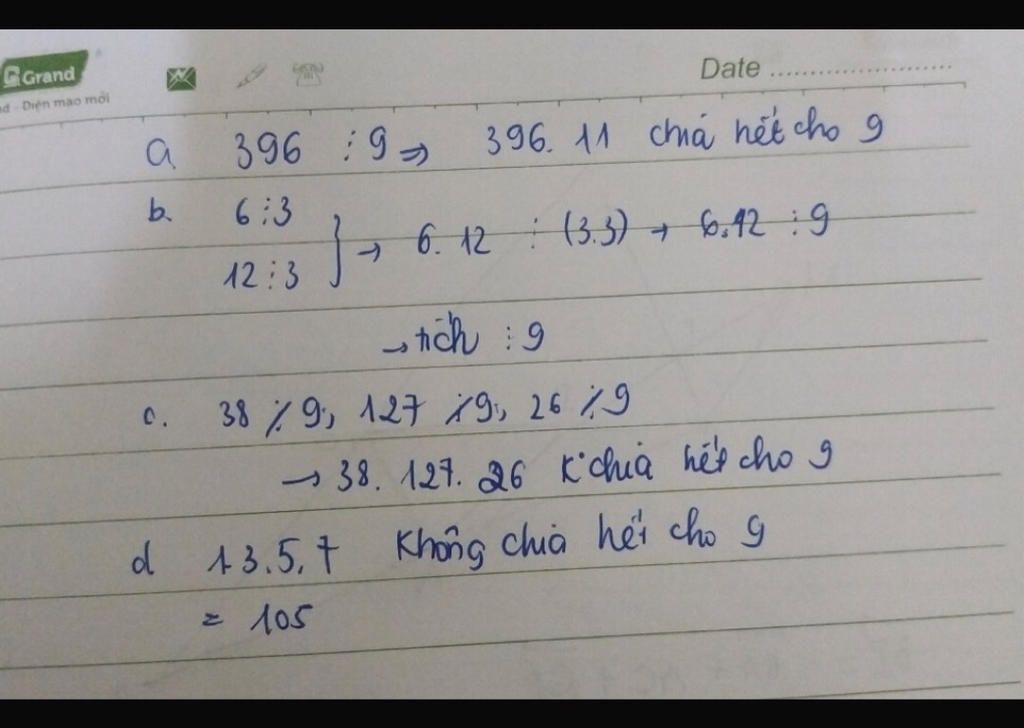 Grand
Date
nd - Diện mạo mới
a. 396 ⋮ 9 ⇒ 396. 11 chia hết cho 9
b. 6 ⋮ 3
12 ⋮ 3 } → 6. 12 ⋮ (3.3) → 6.12 ⋮ 9
→ tích ⋮ 9
c. 38 ⋮̸ 9; 127 ⋮̸ 9; 26 ⋮̸ 9
→ 38. 127. 26 K chia hết cho 9
d 13.5.7 Không chia hết cho 9
= 105